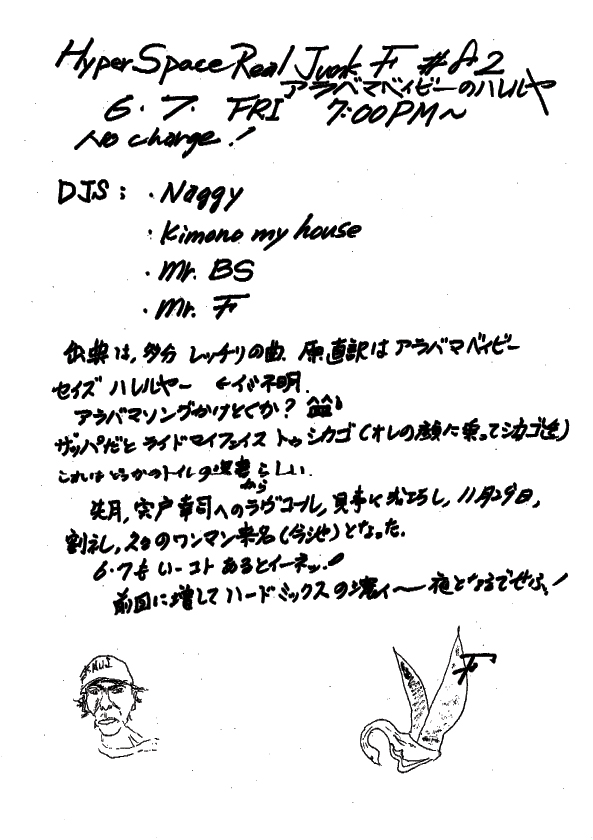 Hyper Space Real Junk F #82
アラバマベイビーのハレルヤ
6.7. FRI 7:00PM〜
No charge!
DJS:
・Naggy
・Kimono my house
・Mr. BS
・Mr. F
出典は,多分 レッチリの曲. 原直訳はアラバマベイビー
セイズ ハレルヤー ←イミ不明.
アラバマソングかけとくか?
ザッパだと ライドマイフェイス トゥ シカゴ(オレの顔に乗ってシカゴ迄)
これはどっかのトイレの落書らしい.
から
先月,宍戸幸司へのラヴコール,見事に 11月29日,
割礼,スタのワンマン来名(今池)となった.
6.7も いーコト あるとイーネッ!
前回に増して ハードミックスの 夜となるでせふ!
KNUJ
F